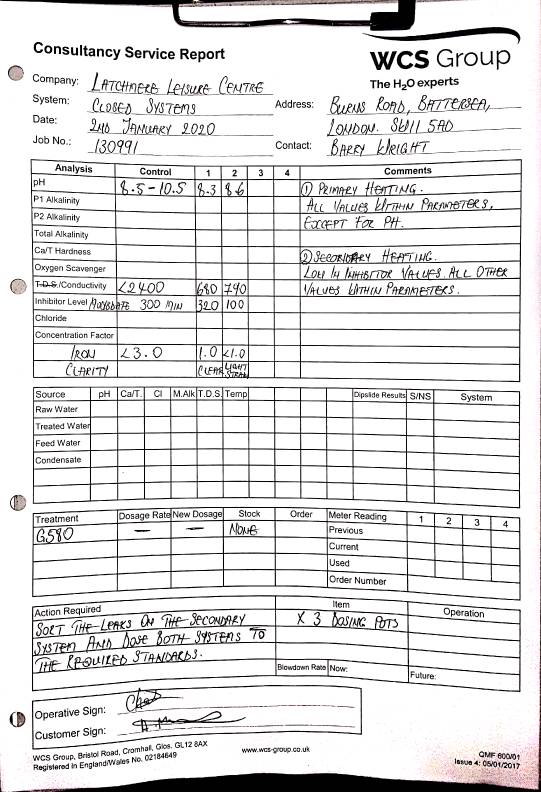 Consultancy Service Report
WCS Group
The H2O experts
Company: LATCHMERE LEISURE CENTRE
System: CLOSED SYSTEMS
Address: BURNS ROAD, BATTERSEA,
Date: 2ND JANUARY 2020
LONDON. SW11 5AD
Job No.: 130991
Contact: BARRY WRIGHT
Analysis Control 1 2 3 4 Comments
pH 8.5-10.5 8.3 8.6 ① PRIMARY HEATING.
P1 Alkalinity ALL VALUES WITHIN PARAMETERS,
P2 Alkalinity EXCEPT FOR PH.
Total Alkalinity
Ca/T Hardness ② SECONDARY HEATING.
Oxygen Scavenger LOW IN INHIBITOR VALUES. ALL OTHER
T.D.S./Conductivity <2400 680 790 VALUES WITHIN PARAMETERS.
Inhibitor Level 300 MIN 320 100
Chloride
Concentration Factor
IRON <3.0 1.0 <1.0
CLARITY CLEAR LIGHT
Source pH Ca/T. Cl M.Alk T.D.S. Temp Dipslide Results S/NS System
Raw Water
Treated Water
Feed Water
Condensate
Treatment Dosage Rate New Dosage Stock Order Meter Reading 1 2 3 4
G580 — — NONE Previous
Current
Used
Order Number
Action Required Item Operation
SORT THE LEAKS ON THE SECONDARY X 3 DOSING POTS
SYSTEM AND DOSE BOTH SYSTEMS TO
THE REQUIRED STANDARDS.
Blowdown Rate Now: Future:
Operative Sign:
Customer Sign:
WCS Group, Bristol Road, Cromhall, Glos. GL12 8AX
www.wcs-group.co.uk
Registered in England/Wales No. 02184649
QMF 600/01
Issue 4: 05/01/2017